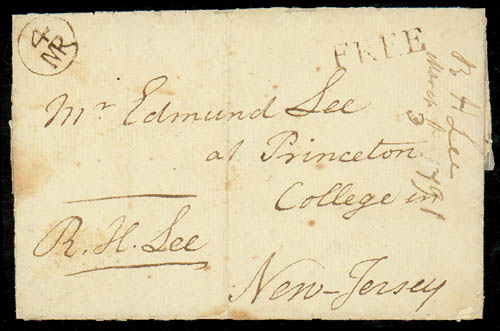 4
MR
FREE
Mr Edmund Lee
at Princeton
College in
New-Jersey
R. H. Lee
R H Lee
March
3
1791